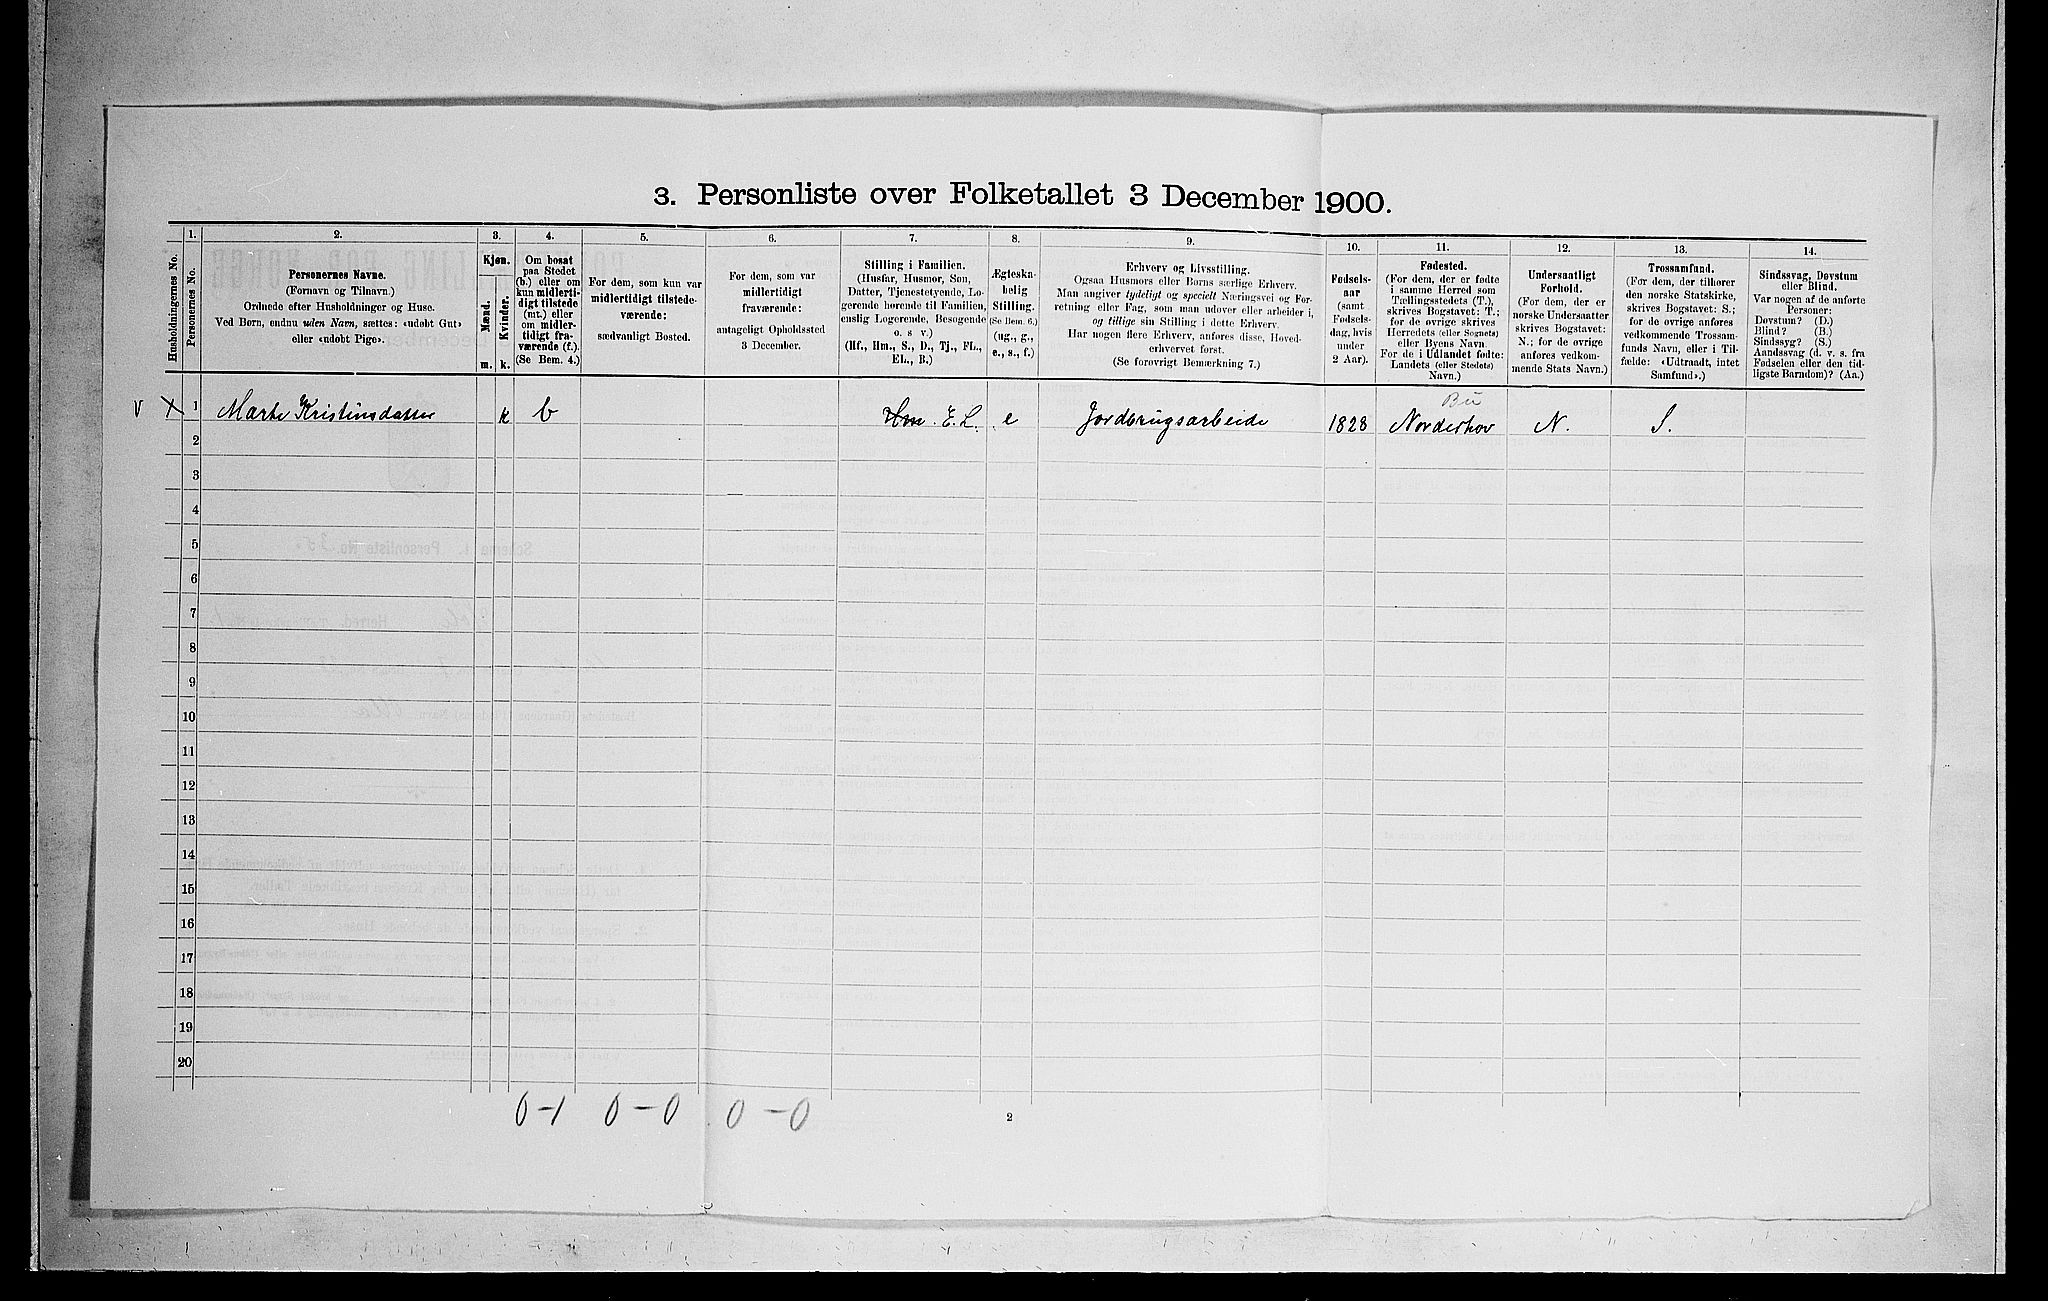 3. Personliste over Folketallet 3 December 1900.
Husholdningernes No.
1.
Personernes No.
2.
Personernes Navne.
(Fornavn og Tilnavn.)
Ordnede efter Husholdninger og Huse.
Ved Børn, endnu uden Navn, sættes: «udøbt Gut»
eller «udøbt Pige».
3.
Kjøn.
Mænd.
Kvinder.
m. k.
4.
Om bosat
paa Stedet
(b.) eller om
kun midlerti-
digt tilstede
(mt.) eller
om midler-
tidigt fra-
værende (f.).
(Se Bem. 4.)
5.
For dem, som kun var
midlertidigt tilstede-
værende:
sædvanligt Bosted.
6.
For dem, som var
midlertidigt
fraværende:
antageligt Opholdssted
3 December.
7.
Stilling i Familien.
(Husfar, Husmor, Søn,
Datter, Tjenestetyende, Lo-
gerende hørende til Familien,
enslig Logerende, Besøgende
o. s v.)
(Hf., Hm., S., D., Tj., FL.,
EL., B.)
8.
Ægteska-
belig
Stilling.
(Se Bem. 6.)
(ug., g.,
e., s., f.)
9.
Erhverv og Livsstilling.
Ogsaa Husmors eller Børns særlige Erhverv.
Man angiver tydeligt og specielt Næringsvei og For-
retning eller Fag, som man udøver eller arbeider i,
og tillige sin Stilling i dette Erhverv.
Har nogen flere Erhverv, anføres disse, Hoved-
erhvervet først.
(Se forøvrigt Bemærkning 7.)
10.
Fødsels-
aar
(samt
Fødsels-
dag, hvis
under
2 Aar).
11.
Fødested.
(For dem, der er fødte
i samme Herred som
Tællingsstedets (T.),
skrives Bogstavet: T.;
for de øvrige skrives
Herredets (eller Sognets)
eller Byens Navn.
For de i Udlandet fødte:
Landets (eller Stedets)
Navn.)
12.
Undersaatligt
Forhold.
(For dem, der er
norske Undersaatter
skrives Bogstavet:
N.; for de øvrige
anføres vedkom-
mende Stats Navn.)
13.
Trossamfund.
(For dem, der tilhører
den norske Statskirke,
skrives Bogstavet: S.;
for de øvrige anføres
vedkommende Trossam-
funds Navn, eller i Til-
fælde: «Udtraadt, intet
Samfund».)
14.
Sindssvag, Døvstum
eller Blind.
Var nogen af de anførte
Personer:
Døvstum? (D.)
Blind? (B.)
Sindssyg? (S.)
Aandssvag (d. v. s. fra
Fødselen eller den tid-
ligste Barndom)? (Aa.)
Bu
V X 1 Marte Kristinsdatter k b Hm. E.L. e Jordbrugsarbeide 1828 Norderhov N. S.
2
3
4
5
6
7
8
9
10
11
12
13
14
15
16
17
18
19
20
0-1 0-0 0-0
2